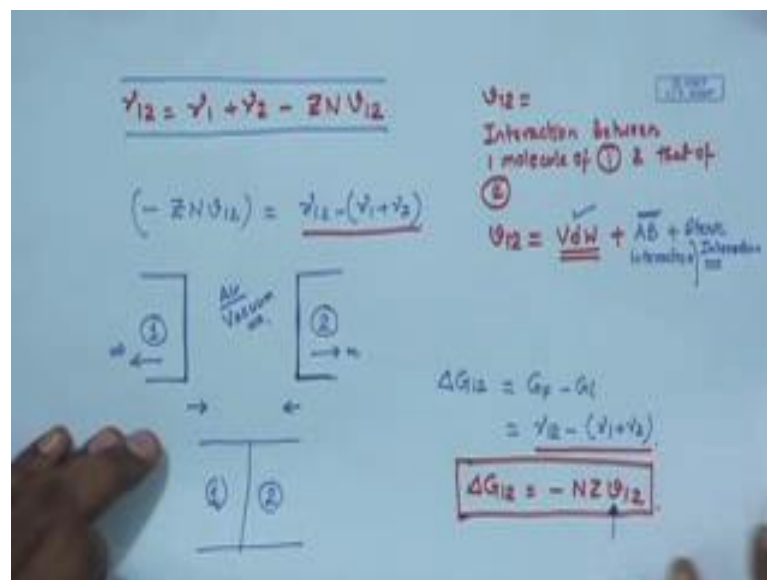 γ12 = γ1 + γ2 - ZNυ12
(- ZNυ12) = γ12 - (γ1+γ2)
①
Air
Vacuum
②
① ②
υ12 =
Interaction between
1 molecule of ① & that of
②
υ12 = VdW + AB +
Interaction
Interaction
ΔG12 = GF - GI
= γ12 - (γ1+γ2)
ΔG12 = - NZυ12